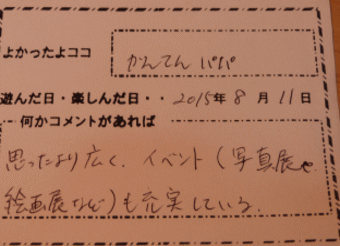 よかったよココ
かんてんパパ
遊んだ日・楽しんだ日・・2015年8月11日
何かコメントがあれば
思ったより広く、イベント（写真展や
絵画展など）も充実している。